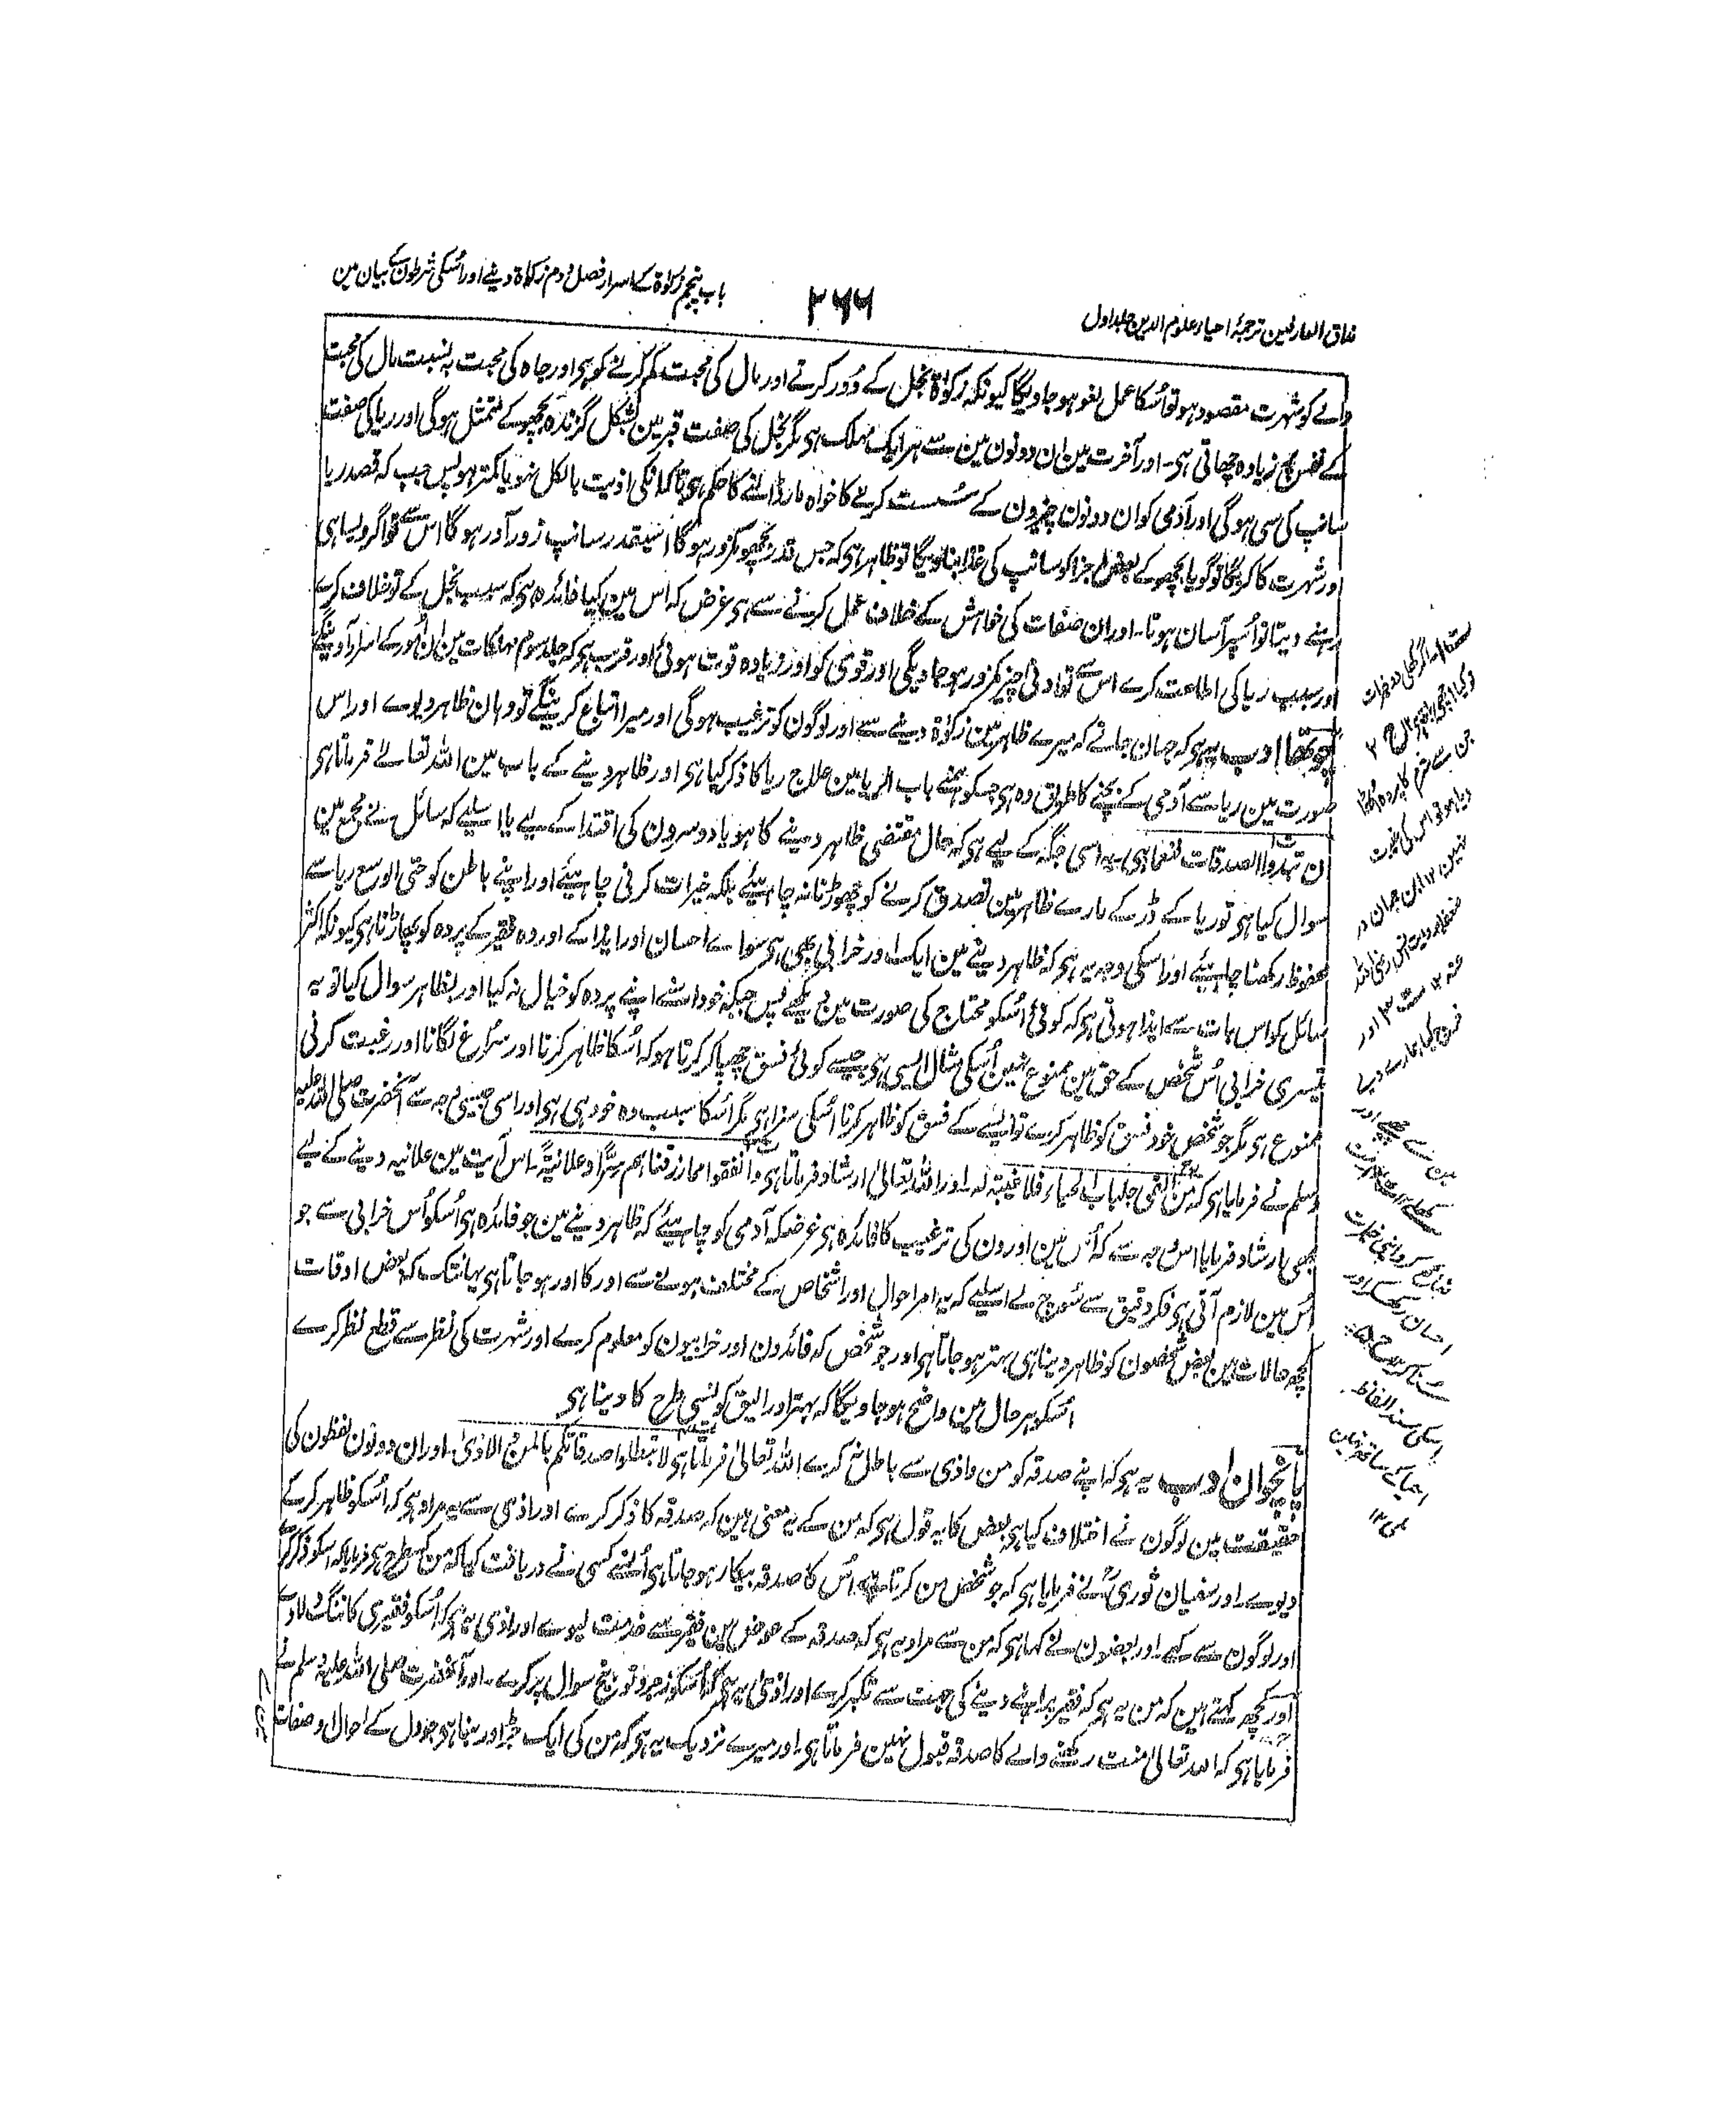 مذاق العارفین ترجمۂ احیاء علوم الدین جلد اول
۲۶۶
باب پنجم زکوٰۃ کے اسرار فصل دوم زکوٰۃ دینے اور اُسکی شرطون کے بیان مین
والے کو شہرت مقصود ہو تو اُسکا عمل لغو ہو جاویگا کیونکہ زکوٰۃ بخل کے دُور کرنے اور مال کی محبت کم کرنے کو ہی اور جاہ کی محبت بہ نسبت مال کی محبت
کے نفس پر زیادہ چھاتی ہی۔ اور آخرت مین ان دونون مین سے ہر ایک مہلک ہی مگر بخل کی صفت قبر مین بشکل گزندہ بچھو کے متمثل ہوگی اور ریا کی صفت
سانپ کی سی ہوگی اور آدمی کو ان دونون چیزون کے سُست کرنے کا خواہ مار ڈالنے کا حکم ہی تاکہ انکی اذیت بالکل نہو یا کمتر ہو پس جب کہ قصد ریا
اور شہرت کا کریگا تو گویا بچھو کے بعض اجزا کو سانپ کی غذا بناویگا تو ظاہر ہی کہ جس قدر بچھو کمزور ہوگا اسیقدر سانپ زور آور ہوگا اس سے تو اگر ویسا ہی
رہنے دیتا تو اُسپر آسان ہوتا۔ اور ان صفات کی خواہش کے خلاف عمل کرنے سے ہی غرض کہ اس مین کیا فائدہ ہی کہ سبب بخل کے تو خلاف کرے
اور سبب ریا کی اطاعت کرے اس سے تو ادنیٰ چیز کمزور ہو جاویگی اور قوی کو اور زیادہ قوت ہوئی اور قریب ہی کہ جلد سوم مہلکات مین ان اُمور کے اسرار آوینگے
چوتھا ادب یہ ہی کہ جہان جانے کہ میرے ظاہر مین زکوٰۃ دینے سے اور لوگون کو ترغیب ہوگی اور میرا اتباع کرینگے تو وہان ظاہر دیوے اور اس
صورت مین ریا سے آدمی کے بچنے کا طریق وہ ہی جسکو ہمنے باب الریا مین علاج ریا کا ذکر کیا ہی اور ظاہر دینے کے باب مین اللہ تعالےٰ فرماتا ہی
ان تبدوا الصدقات فنعما ہی۔ یہ اسی جگہ کے لیے ہی کہ حال مقتضی ظاہر دینے کا ہو یا دوسرون کی اقتدا کے لیے یا اسلیے کہ سائل نے مجمع مین
سوال کیا ہی تو ریا کے ڈر کے مارے ظاہر مین تصدق کرنے کو چھوڑنا نہ چاہیئے بلکہ خیرات کرنی چاہیئے اور اپنے باطن کو حتی الوسع ریا سے
محفوظ رکھنا چاہیئے اور اسکی وجہ یہ ہی کہ ظاہر دینے مین ایک اور خرابی بھی ہی سوا سے احسان اور ایذا کے اور وہ فقیر کے پردہ کو پھاڑنا ہی کیونکہ اکثر
سائل کو اس بات سے ایذا ہوتی ہی کہ کوئی اُسکو محتاج کی صورت مین دیکھے پس جبکہ خود اسنے اپنے پردہ کو خیال نہ کیا اور بظاہر سوال کیا تو یہ
تیسری خرابی اُس شخص کے حق مین ممنوع نہین اُسکی مثال ایسی ہی جیسے کوئی فسق چھپا کر کرتا ہو کہ اُسکا ظاہر کرنا اور سراغ لگانا اور غیبت کرنی
ممنوع ہی مگر جو شخص خود فسق کو ظاہر کرے تو ایسے کے فسق کو ظاہر کرنا اُسکی سزا ہی مگر اسکا سبب وہ خود ہی ہی اور اسی جیسی وجہ سے آنحضرت صلی اللہ علیہ
وسلم نے فرمایا ہی کہ من القی جلباب الحیاء فلا غیبۃ لہ۔ اور اللہ تعالیٰ ارشاد فرماتا ہی وانفقوا مما رزقناہم سرًّا وعلانیۃً۔ اس آیت مین علانیہ دینے کے لیے
بھی ارشاد فرمایا اس وجہ سے کہ اُس مین اورون کی ترغیب کا فائدہ ہی غرضکہ آدمی کو چاہیئے کہ ظاہر دینے مین جو فائدہ ہی اُسکو اُس خرابی سے جو
اُس مین لازم آتی ہی فکر دقیق سے سُوچ لے اسلیے کہ یہ امر احوال اور اشخاص کے مختلف ہونے سے اور کا اور ہو جاتا ہی یہانتک کہ بعض اوقات
کچھ حالات مین بعض شخصون کو ظاہر دینا ہی بہتر ہو جاتا ہی اور جو شخص کہ فائدون اور خرابیون کو معلوم کرلے اور شہرت کی نظر سے قطع نظر کرے
اُسکو ہر حال مین واضح ہو جاویگا کہ بہتر اور الیق کونسی طرح کا دینا ہی
پانچوان ادب یہ ہی کہ اپنے صدقہ کو من و اذی سے باطل نکرے اللہ تعالیٰ فرماتا ہی لا تبطلوا صدقاتکم بالمن والاذیٰ۔ اور ان دونون لفظون کی
حقیقت مین لوگون نے اختلاف کیا ہی بعض کا یہ قول ہی کہ من کے یہ معنی ہین کہ صدقہ کا ذکر کرے اور اذی سے یہ مراد ہی کہ اُسکو ظاہر کرکے
دیوے۔ اور سفیان ثوری نے فرمایا ہی کہ جو شخص من کرتا ہی اُس کا صدقہ بیکار ہو جاتا ہی اُنسے کسی نے دریافت کیا کہ من کسطرح ہی فرمایا کہ اسکو ذکر کرے
اور لوگون سے کہے۔ اور بعضون نے کہا ہی کہ من سے مراد یہ ہی کہ صدقہ کے عوض مین فقیر سے خدمت لیوے اور اذی یہ ہی کہ اُسکو فقیری کا ننگ دلاوے
اور کچھ کہتے ہین کہ من یہ ہی کہ فقیر پر اپنے دینے کی جہت سے تکبر کرے اور اذی یہ ہی کہ اُسکو زجر و توبیخ سوال پر کرے۔ اور آنحضرت صلی اللہ علیہ وسلم نے
فرمایا ہی کہ اللہ تعالیٰ منت رکھنے والے کا صدقہ قبول نہین فرماتا ہی۔ اور میرے نزدیک یہ ہی کہ من کی ایک جڑ اور بنا ہی جو دل کے احوال و صفات
جن سے شرم کا پردہ
دیا ہو تو اس کی غیبت
نہین
عنہ
مین سے چھپے اور
احسان رکھکر اور
اسکی سند الفاظ
احیا کے ساتھ نہین
ملی ۱۲